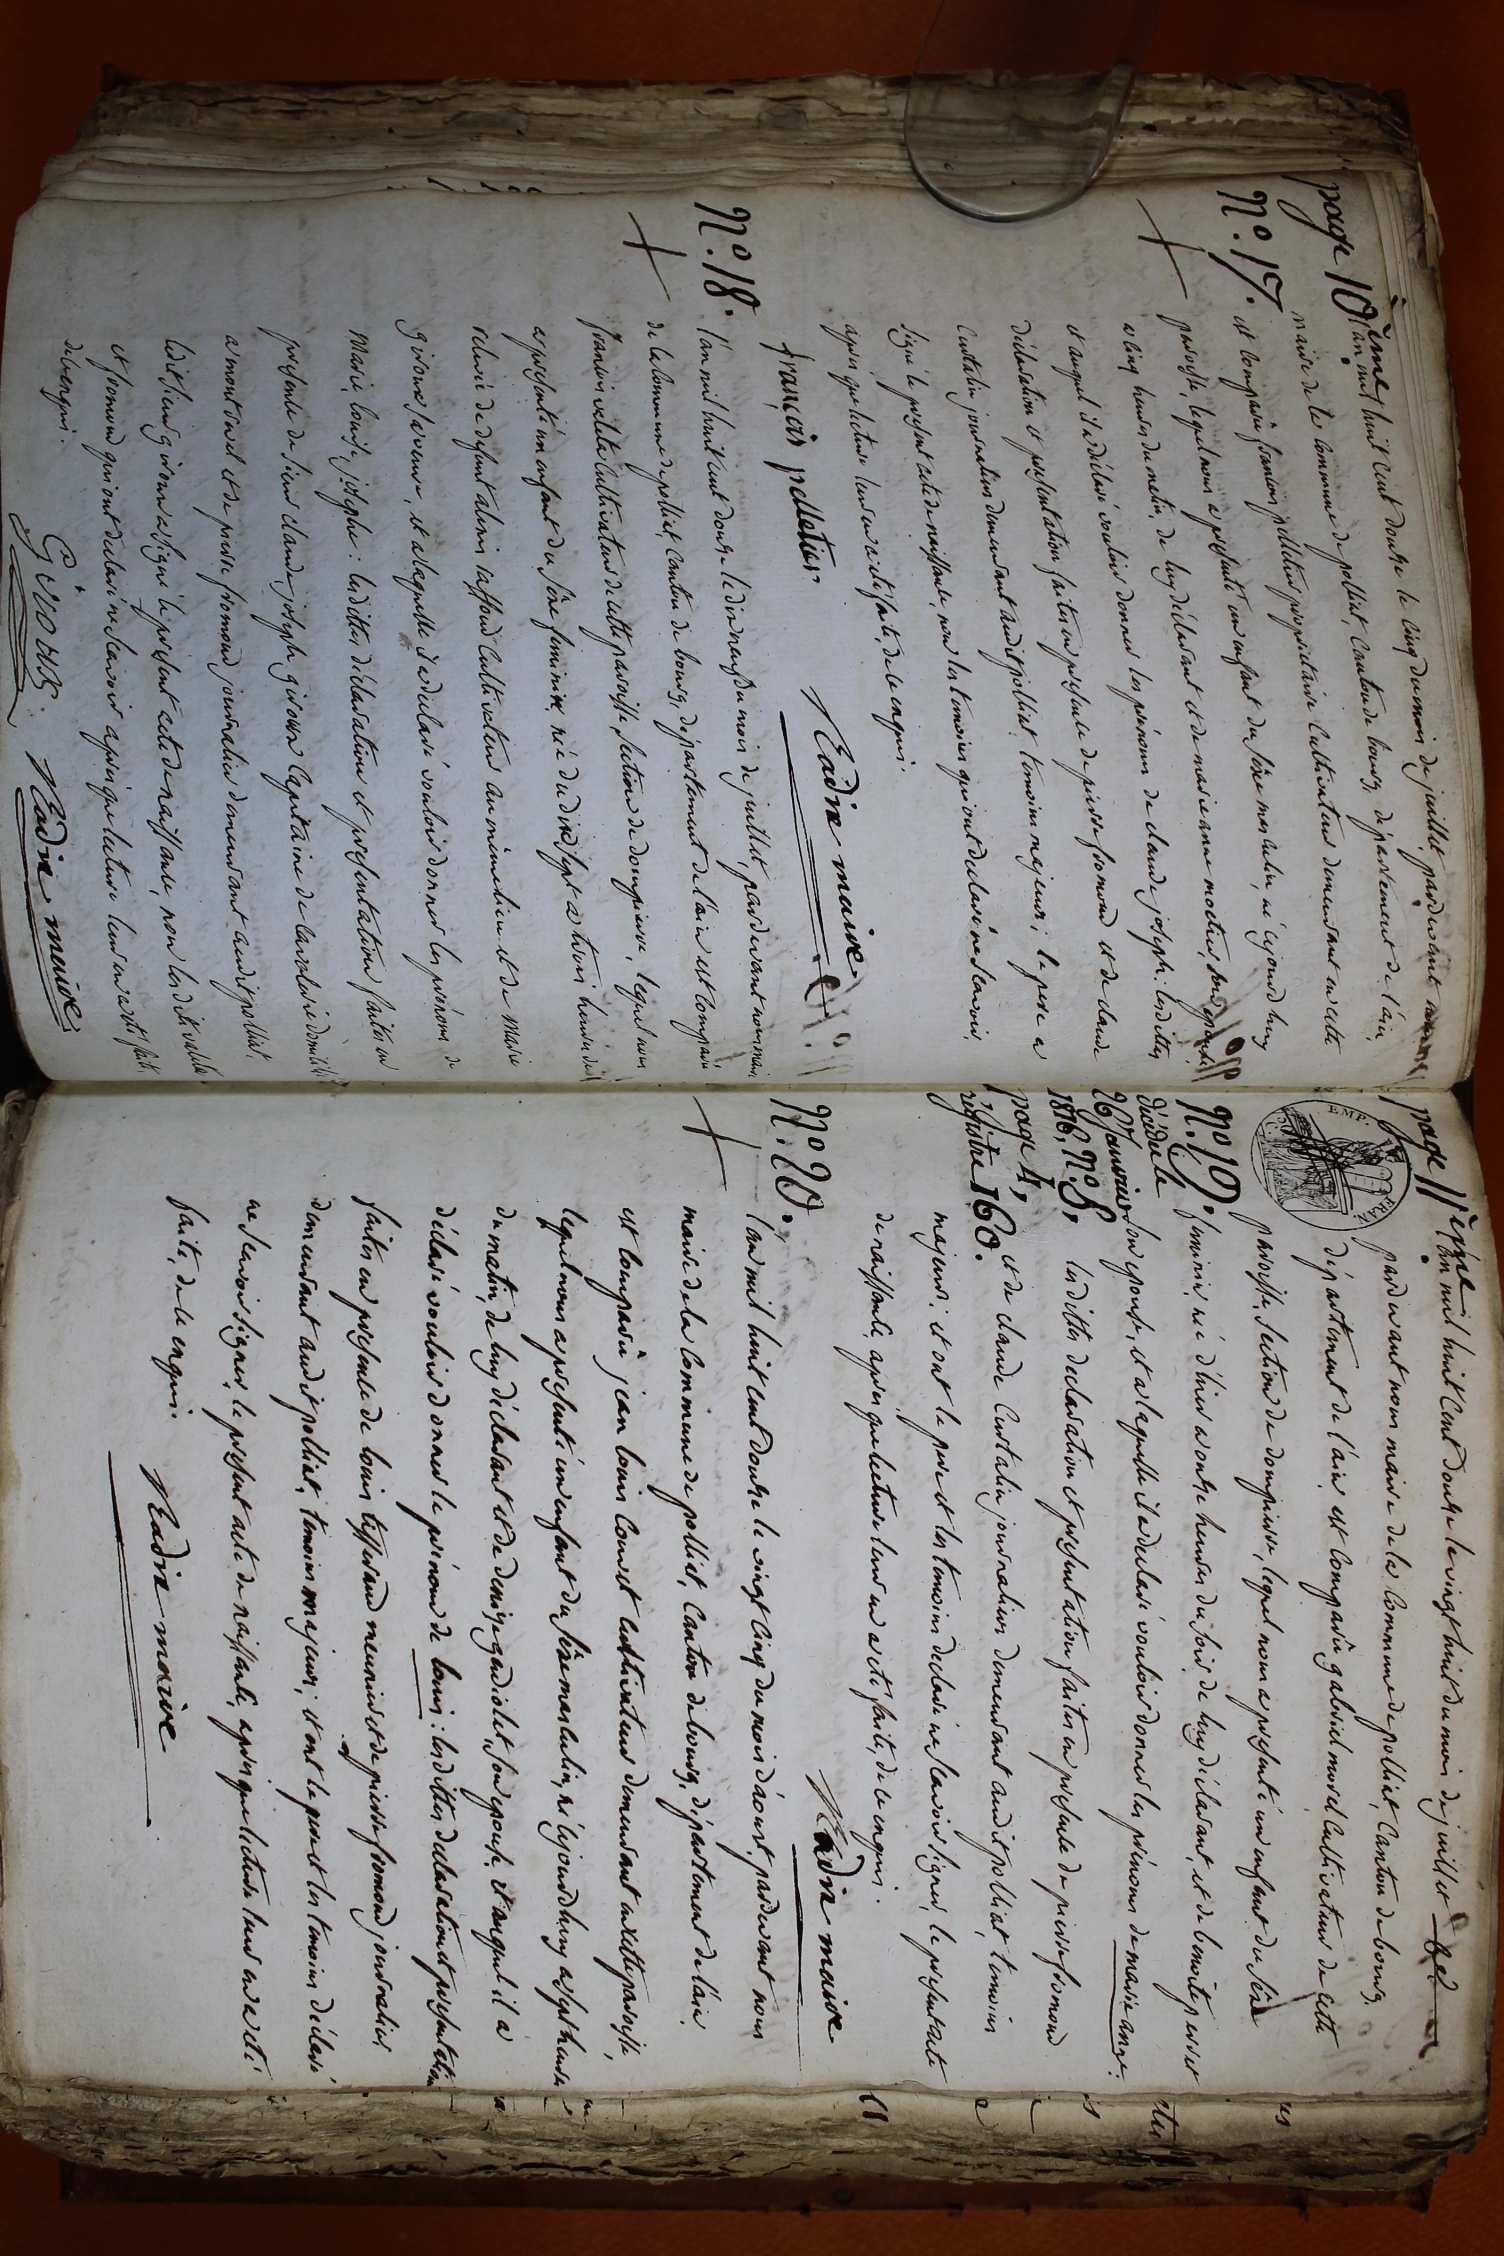 page 10ème
L'an mil huit cent douze le cinq du mois de juillet, pardevant nous
maire de la commune de polliat, canton de bourg, département de l'ain,
N.º 17.
est comparu françois pelletier propriétaire cultivateur demeurant en cette
paroisse, lequel nous a présenté un enfant du sexe masculin, né cejourd'huy
a cinq heures du matin, de luy déclarant et de marie anne son épouse
et auquel il a déclaré vouloir donner les prénoms de claude joseph: lesdittes
déclaration et présentation faites en présence de pierre fromond et de claude
Curtalin journaliers demeurant audit polliat, temoins majeurs; le pere a
signé le présent acte de naissance, non les temoins qui ont déclaré ne scavoir,
apres que lecture leur en a été faite, de ce enquis.
françois pelletier
maire
N.º 18.
l'an mil huit cent douze le dix neuf du mois de juillet, pardevant nous maire
de la commune de polliat, canton de bourg, département de l'ain est comparu
françois cultivateur de cette paroisse, section de dompierre, lequel nous
a présenté un enfant du sexe feminin, né du dix sept a trois heures du
de defunt cultivateur au même lieu et de marie
sa veuve, et a laquelle il a déclaré vouloir donner les prénoms de
marie, louise, josephe: lesdittes déclaration et présentation faites en
présence de sieur claude joseph capitaine de cavalerie
a mont et de pierre fromond journalier demeurant audit polliat,
ledit sieur a signé le présent acte de naissance, non lesdits
et fromond qui ont déclaré ne scavoir apres que lecture leur en a été faite,
de ce enquis.
maire
page 11ème
L'an mil huit cent douze le vingt huit du mois de juillet
pardevant nous maire de la commune de polliat, canton de bourg,
département de l'ain est comparu gabriel morel cultivateur de cette
EMP. FRAN.
paroisse, section de dompierre, lequel nous a présenté un enfant du sexe
N.º 19.
feminin, né d'hier a onze heures du soir, de luy déclarant, et de benoite
décédée le
26 janvier
1816, N.º 8,
page 4,
régistre 160.
son épouse, et a laquelle il a déclaré vouloir donner les prénoms de marie anne:
lesdittes déclaration et présentation faites en présence de pierre fromond
et de claude Curtalin journaliers demeurant audit polliat, temoins
majeurs; et ont le pere et les temoins déclaré ne scavoir signer le présent acte
de naissance, apres que lecture leur en a été faite, de ce enquis.
maire
N.º 20.
l'an mil huit cent douze le vingt cinq du mois d'aoust, pardevant nous
maire de la commune de polliat, canton de bourg, département de l'ain
est comparu jean louis cultivateur demeurant en cette paroisse,
lequel nous a présenté un enfant du sexe masculin, né cejourd'huy a sept heures
du matin, de luy déclarant et de denise son épouse, et auquel il a
déclaré vouloir donner le prénom de louis: lesdittes déclaration et présentation
faites en présence de louis meunier et de pierre fromond journalier
demeurant audit polliat, temoins majeurs; et ont le pere et les temoins déclaré
ne scavoir signer le présent acte de naissance, apres que lecture leur en a été
faite, de ce enquis.
maire